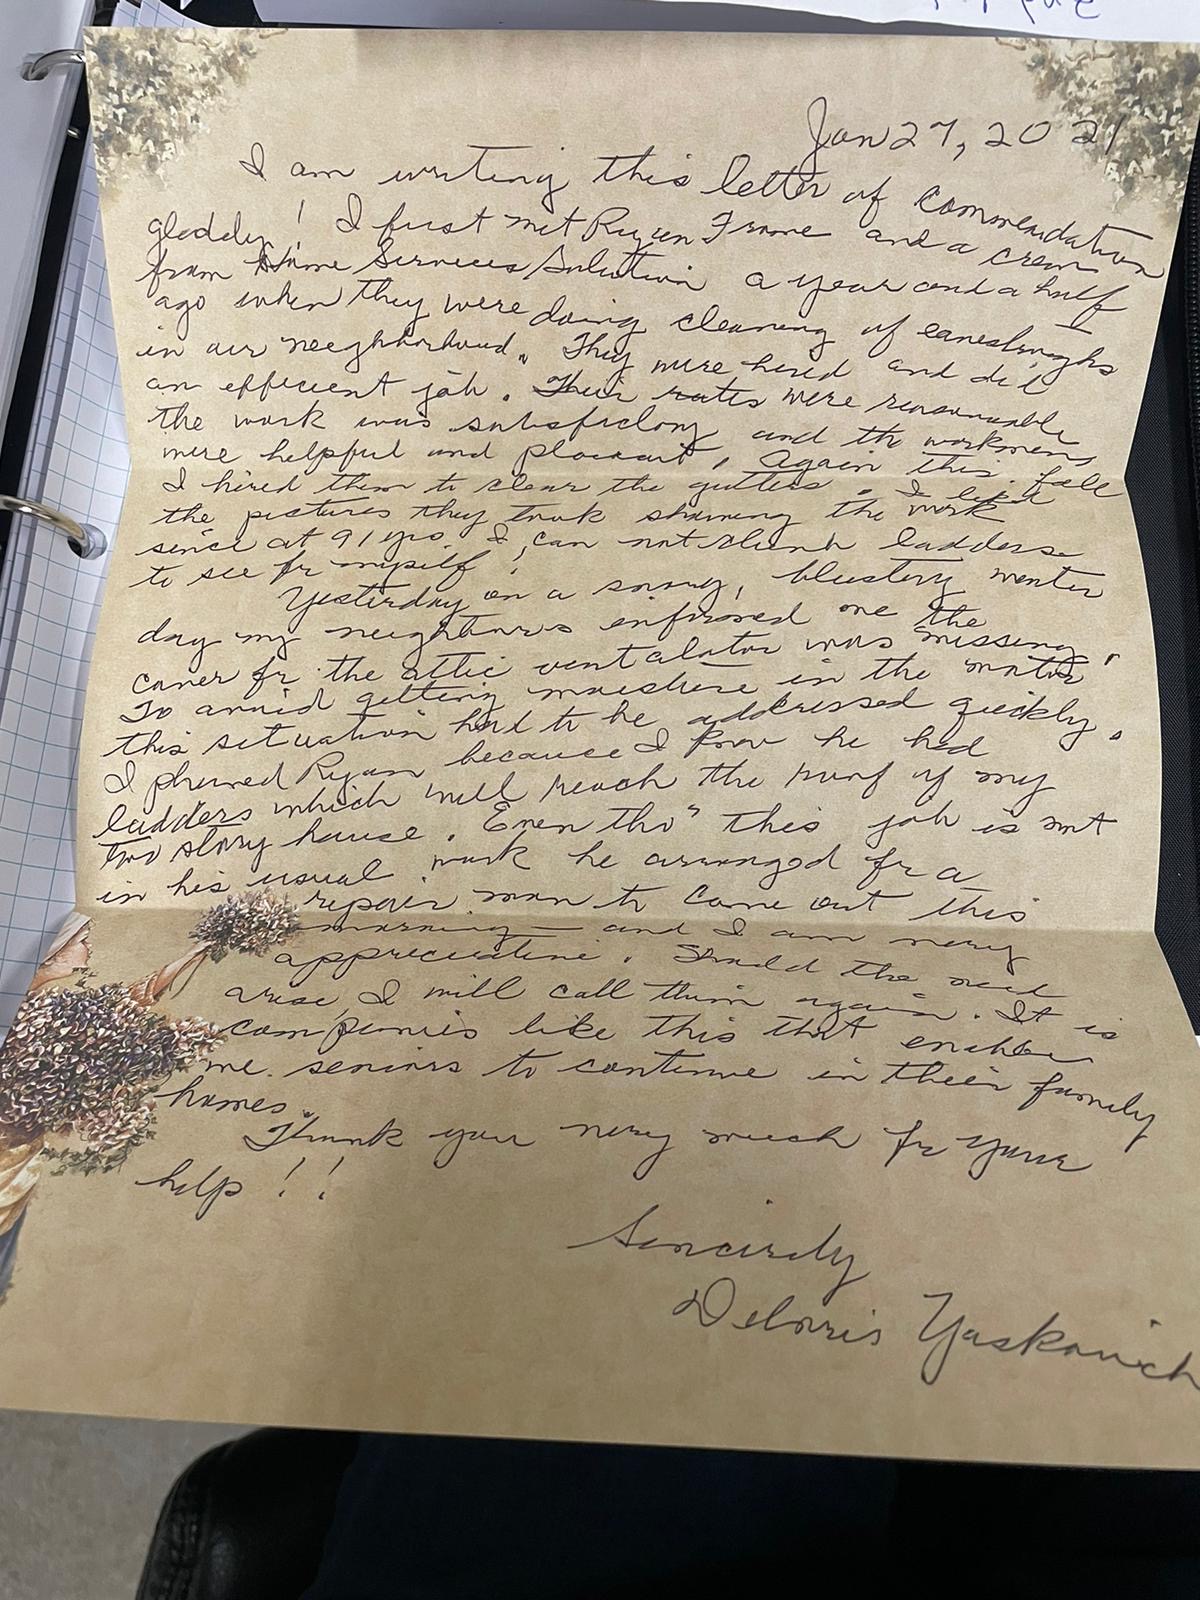 Jan 27, 2021
I am writing this letter of commendation
gladly! I first met Ryan Frame and a crew
from Home Services Solution a year and a half
ago when they were doing cleaning of eavestroughs
in our neighborhood. They were hired and did
an efficient job. Their rates were reasonable
the work was satisfactory and the workmens
were helpful and pleasant. Again this fall
I hired them to clear the gutters. I liked
the pictures they took showing the work
since at 91 yrs. I can not climb ladders
to see for myself!
Yesterday on a snowy, blustery winter
day my neighbours informed me the
cover for the attic ventalator was missing.
To avoid getting moisture in the
this situation had to be addressed quickly.
I phoned Ryan because I know he had
ladders which will reach the roof of my
two story house. Even tho" this job is not
in his usual work he arranged for a
repair man to come out this
morning — and I am very
appreciative. Should the need
arise, I will call them again. It is
companies like this that enable
me. seniors to continue in their family
homes.
Thank you very much for your
help!!
Sincerely
Deloris Yaskovich